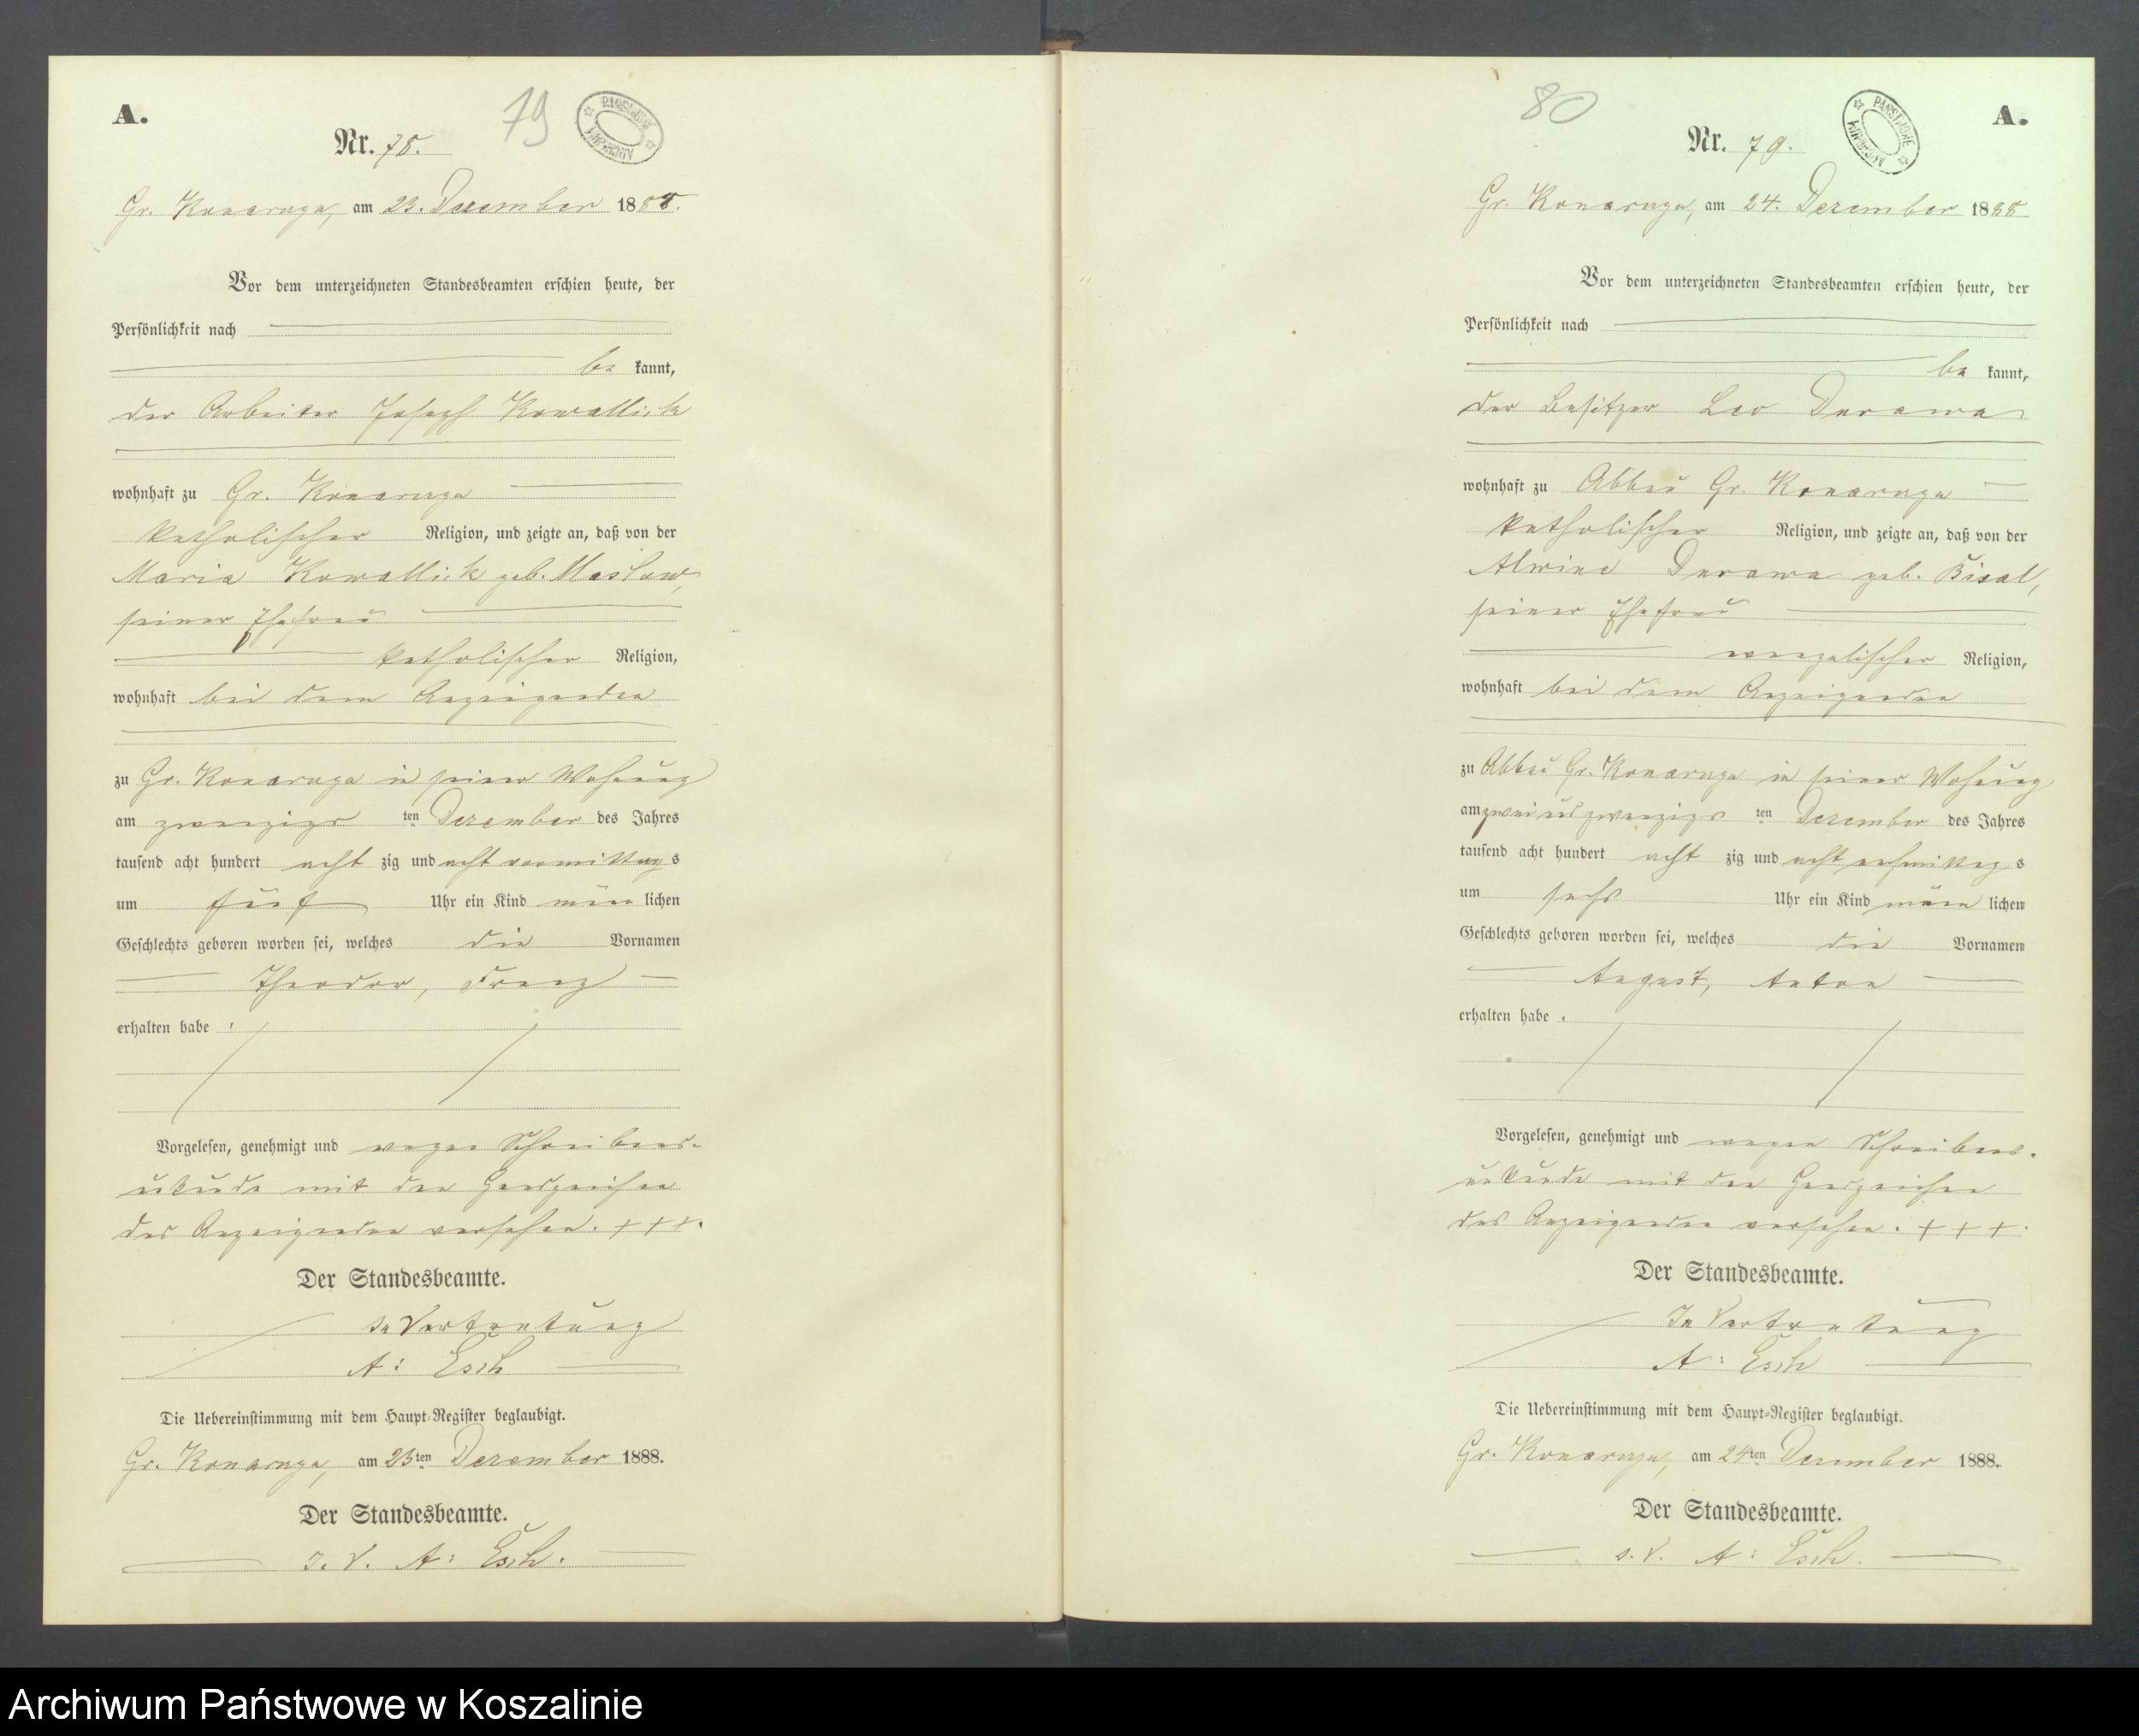 A.
79
Nr. 78.
Gr. Konarczyn, am 23. Dezember 1888.
Vor dem unterzeichneten Standesbeamten erschien heute, der
Persönlichkeit nach
be kannt,
der Arbeiter Joseph Kowallick
wohnhaft zu Gr. Konarczyn
katholischer Religion, und zeigte an, daß von der
Maria Kowallick geb. Maslow,
seiner Ehefrau
katholischer Religion,
wohnhaft bei dem Anzeigenden
zu Gr. Konarczyn in seiner Wohnung
am zwanzigs ten Dezember des Jahres
tausend acht hundert acht zig und acht vormittag s
um fünf Uhr ein Kind männ lichen
Geschlechts geboren worden sei, welches die Vornamen
Theodor, Franz
erhalten habe .
Vorgelesen, genehmigt und wegen Schreibens-
unkunde mit den Handzeichen
des Anzeigenden versehen. + + +.
Der Standesbeamte.
In Vertretung
A: Esch
Die Uebereinstimmung mit dem Haupt-Register beglaubigt.
Gr. Konarczyn, am 23ten Dezember 1888.
Der Standesbeamte.
I. V. A: Esch.
80
PAŃSTWOWE ARCHIWUM
A.
Nr. 79.
Gr. Konarczyn, am 24. Dezember 1888
Vor dem unterzeichneten Standesbeamten erschien heute, der
Persönlichkeit nach
be kannt,
der Besitzer Leo Durawa
wohnhaft zu Abbau Gr. Konarczyn
katholischer Religion, und zeigte an, daß von der
Alwine Durawa geb.
seiner Ehefrau
evangelischer Religion,
wohnhaft bei dem Anzeigenden
zu Abbau Gr. Konarczyn in seiner Wohnung
am zweiundzwanzigs ten Dezember des Jahres
tausend acht hundert acht zig und acht nachmittag s
um sechs Uhr ein Kind männ lichen
Geschlechts geboren worden sei, welches die Vornamen
August, Anton
erhalten habe .
Vorgelesen, genehmigt und wegen Schreibens-
unkunde mit den Handzeichen
des Anzeigenden versehen. + + +.
Der Standesbeamte.
In Vertretung
A: Esch
Die Uebereinstimmung mit dem Haupt-Register beglaubigt.
Gr. Konarczyn, am 24ten Dezember 1888.
Der Standesbeamte.
I. V. A: Esch.
Archiwum Państwowe w Koszalinie